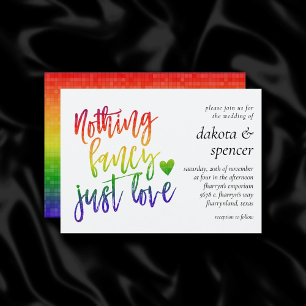 Nothing
fancy
just love
please join us for
the wedding of
dakota &
spencer
saturday, 20th of november
at four in the afternoon
fharryn's emporium
9678 e. fharryn's way
fharrynland, texas
reception to follow